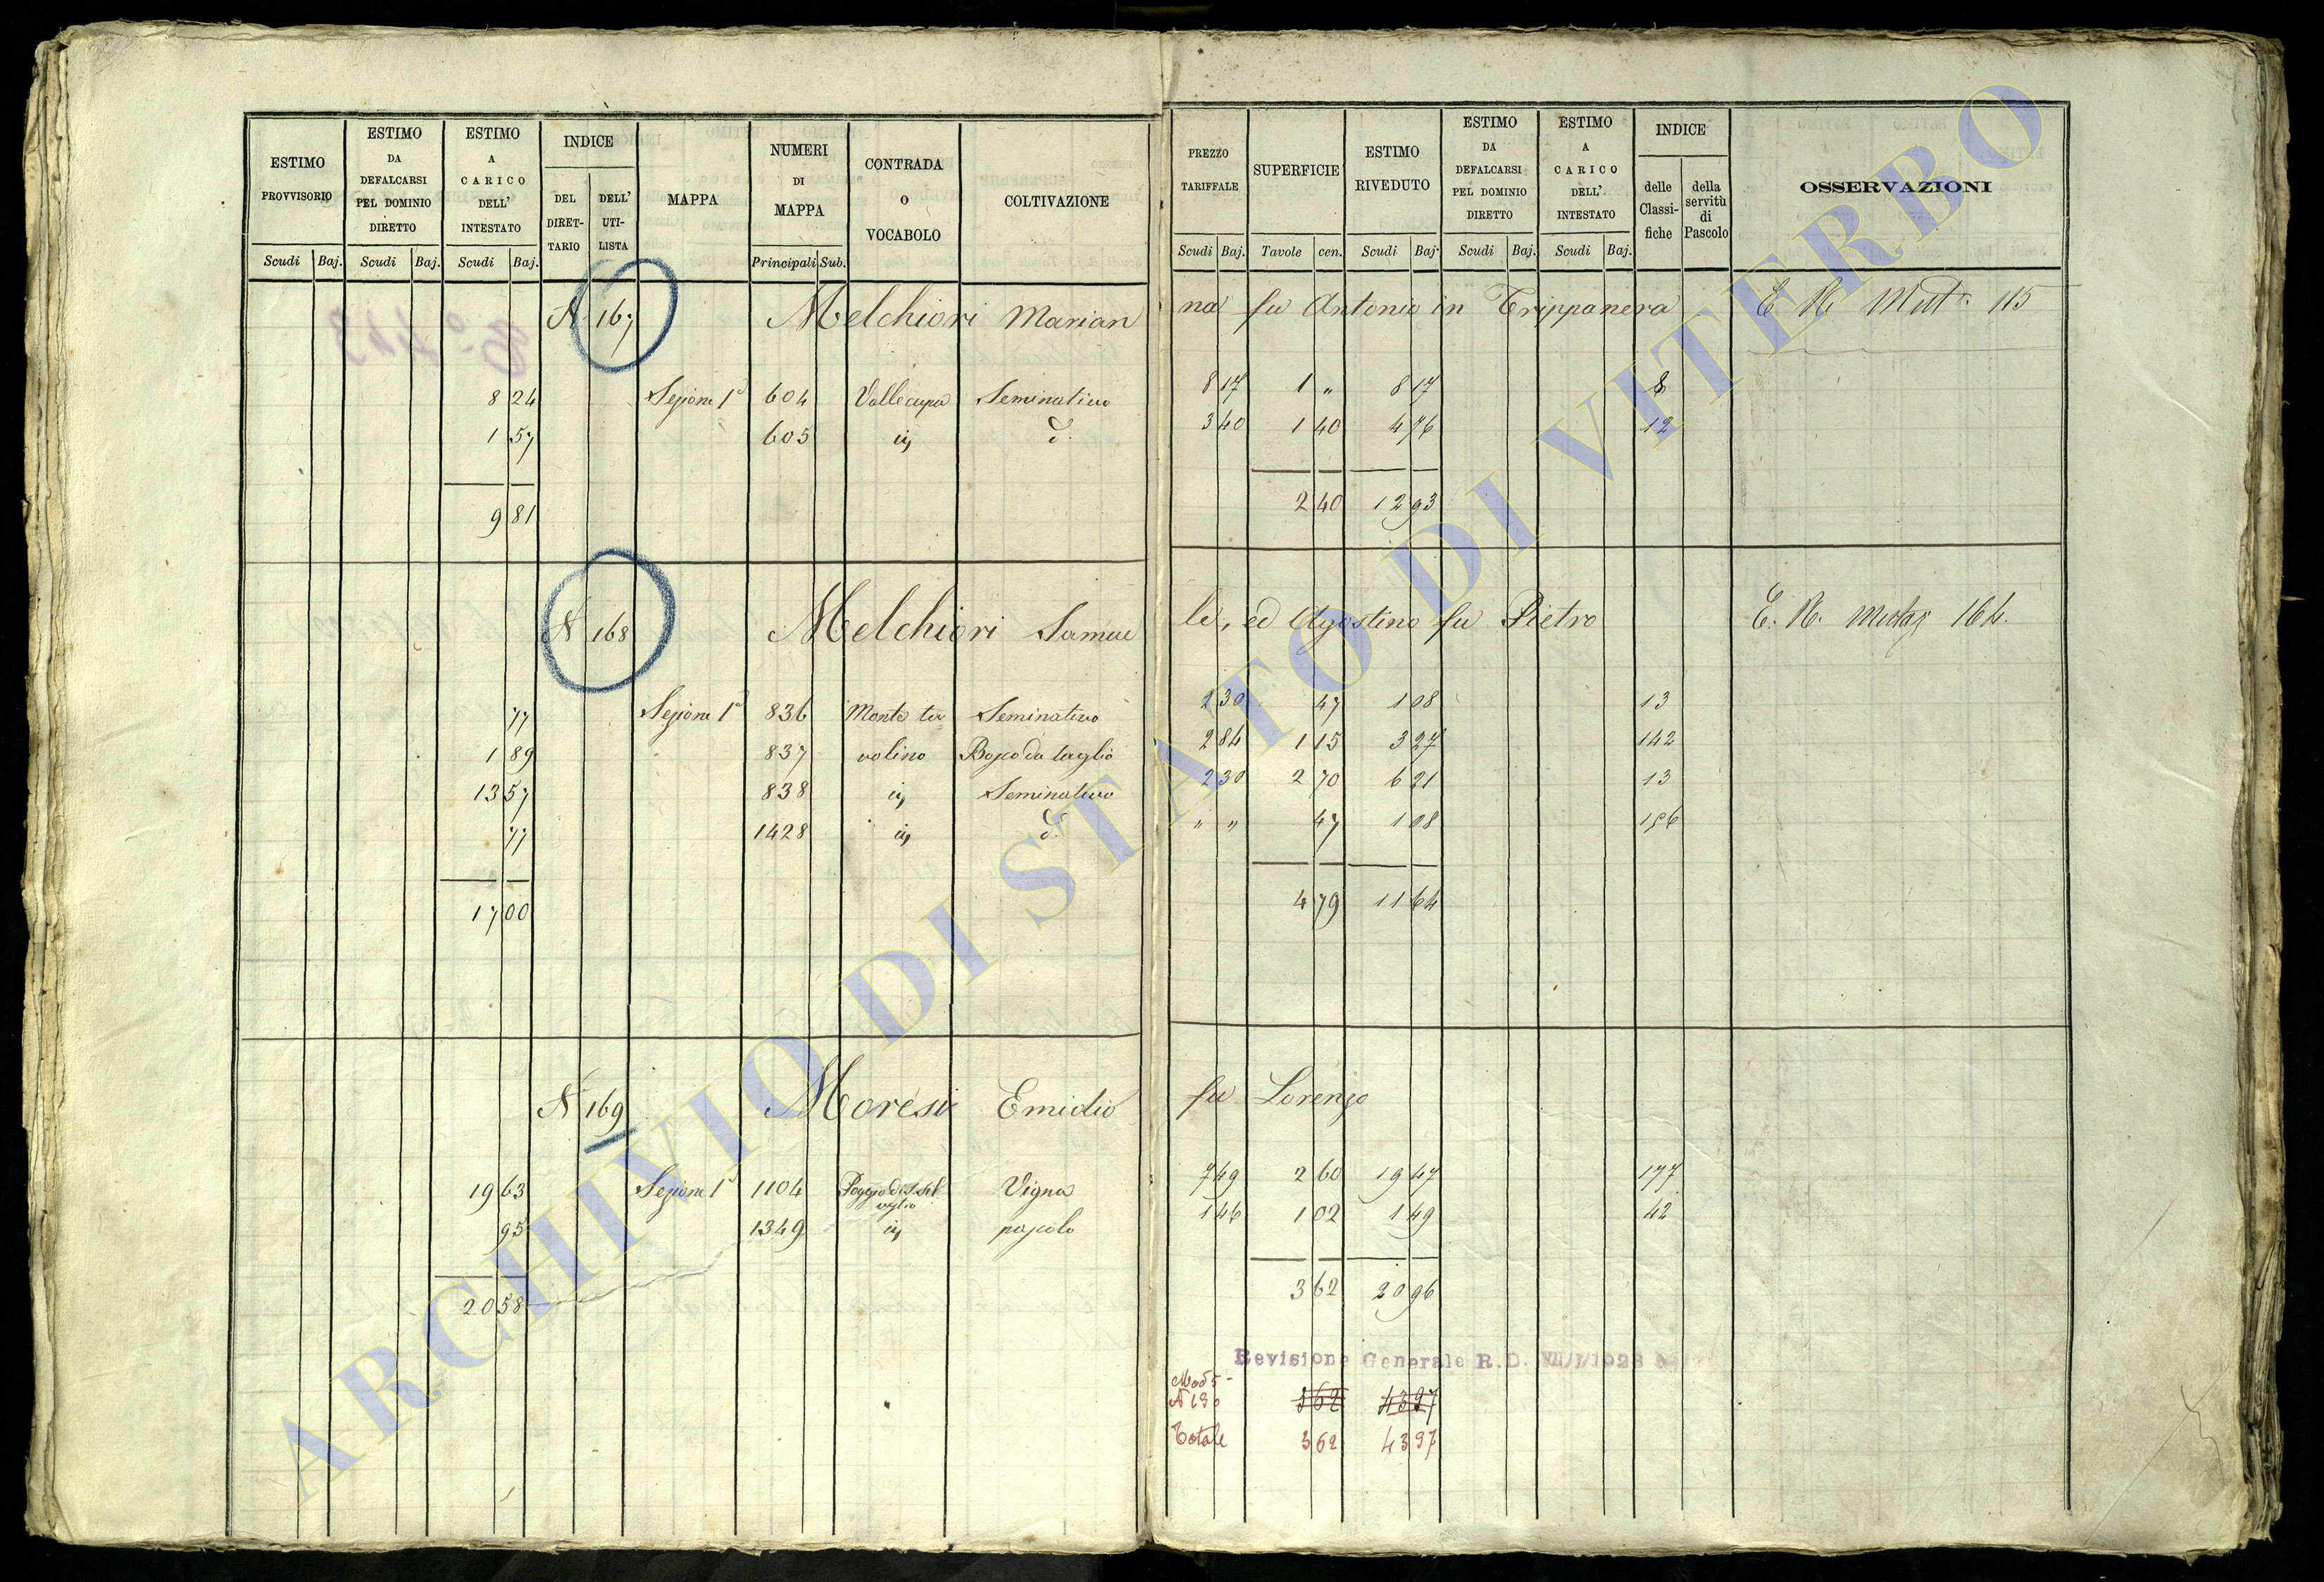 ESTIMO PROVVISORIO
ESTIMO DA DEFALCARSI PEL DOMINIO DIRETTO
ESTIMO A CARICO DELL' INTESTATO
INDICE
DEL DIRET-TARIO
DELL' UTI-LISTA
MAPPA
NUMERI DI MAPPA
CONTRADA O VOCABOLO
COLTIVAZIONE
PREZZO TARIFFALE
SUPERFICIE
ESTIMO RIVEDUTO
ESTIMO DA DEFALCARSI PEL DOMINIO DIRETTO
ESTIMO A CARICO DELL' INTESTATO
INDICE
delle Classi-fiche
della servitù di Pascolo
OSSERVAZIONI
Scudi Baj. Scudi Baj. Scudi Baj. Principali Sub. Scudi Baj. Tavole cen. Scudi Baj. Scudi Baj. Scudi Baj.
N 167 Melchiori Marianna fu Antonio in Trippanera E R Mut. 115
8 24 Sezione 1ª 604 Vallecupa Seminativo 8 17 1 " 8 17 8
1 57 605 iv d. 3 40 1 40 4 76 12
9 81 2 40 12 93
N 168 Melchiori Samuele, ed Agostino fu Pietro E. R. 164.
77 Sezione 1ª 836 Monte ta Seminativo 2 30 47 1 08 13
1 89 837 volino Bosco da taglio 2 84 1 15 3 27 142
13 57 838 iv Seminativo 2 30 2 70 6 21 13
77 1428 iv d. " " 47 1 08
17 00 4 79 11 64
N 169 Moresi Emidio fu Lorenzo
19 63 Sezione 1ª 1104 Poggio di Vigna 7 49 2 60 19 47 177
95 1349 iv pascolo 1 46 1 02 1 49 42
20 58 3 62 20 96
Revisione Generale R.D.
Mod 5 -
N 130 3 62 43 97
Totale 3 62 43 97
ARCHIVIO DI STATO DI VITERBO